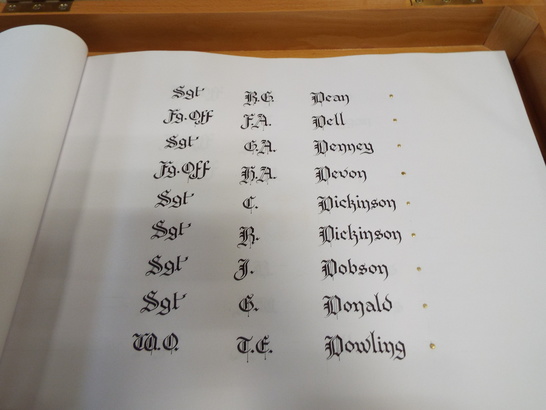 Sgt R.G. Dean
Fg.Off F.A. Dell
Sgt G.A. Denney
Fg.Off H.A. Devon
Sgt C. Dickinson
Sgt R. Dickinson
Sgt J. Dobson
Sgt G. Donald
W.O. T.E. Dowling